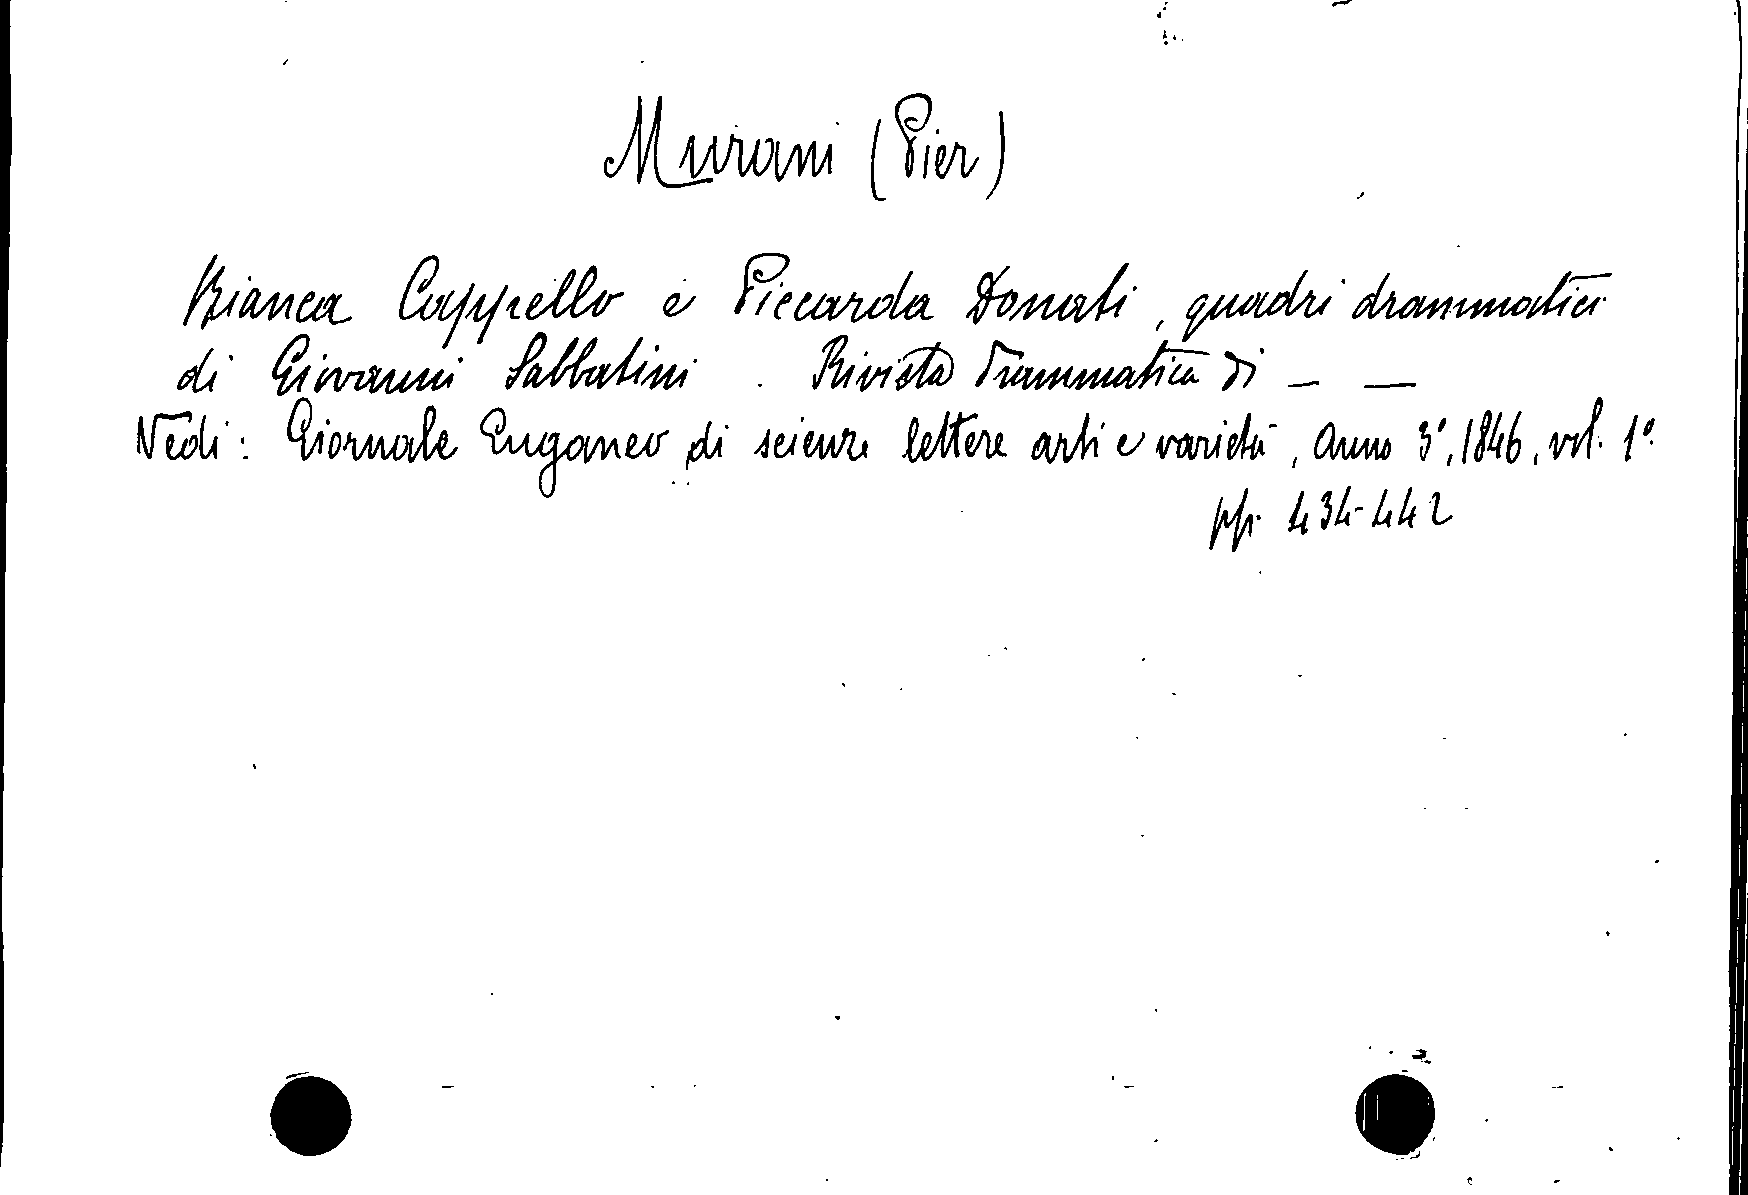 Murani (Pier)
Bianca Cappello e Piccarda Donati, quadri drammatici
di Giovanni Sabbatini. Rivista Drammatica di — —
Vedi: Giornale Euganeo di scienze lettere arti e varietà, anno 3º, 1846, vol. 1º.
pp. 434-442